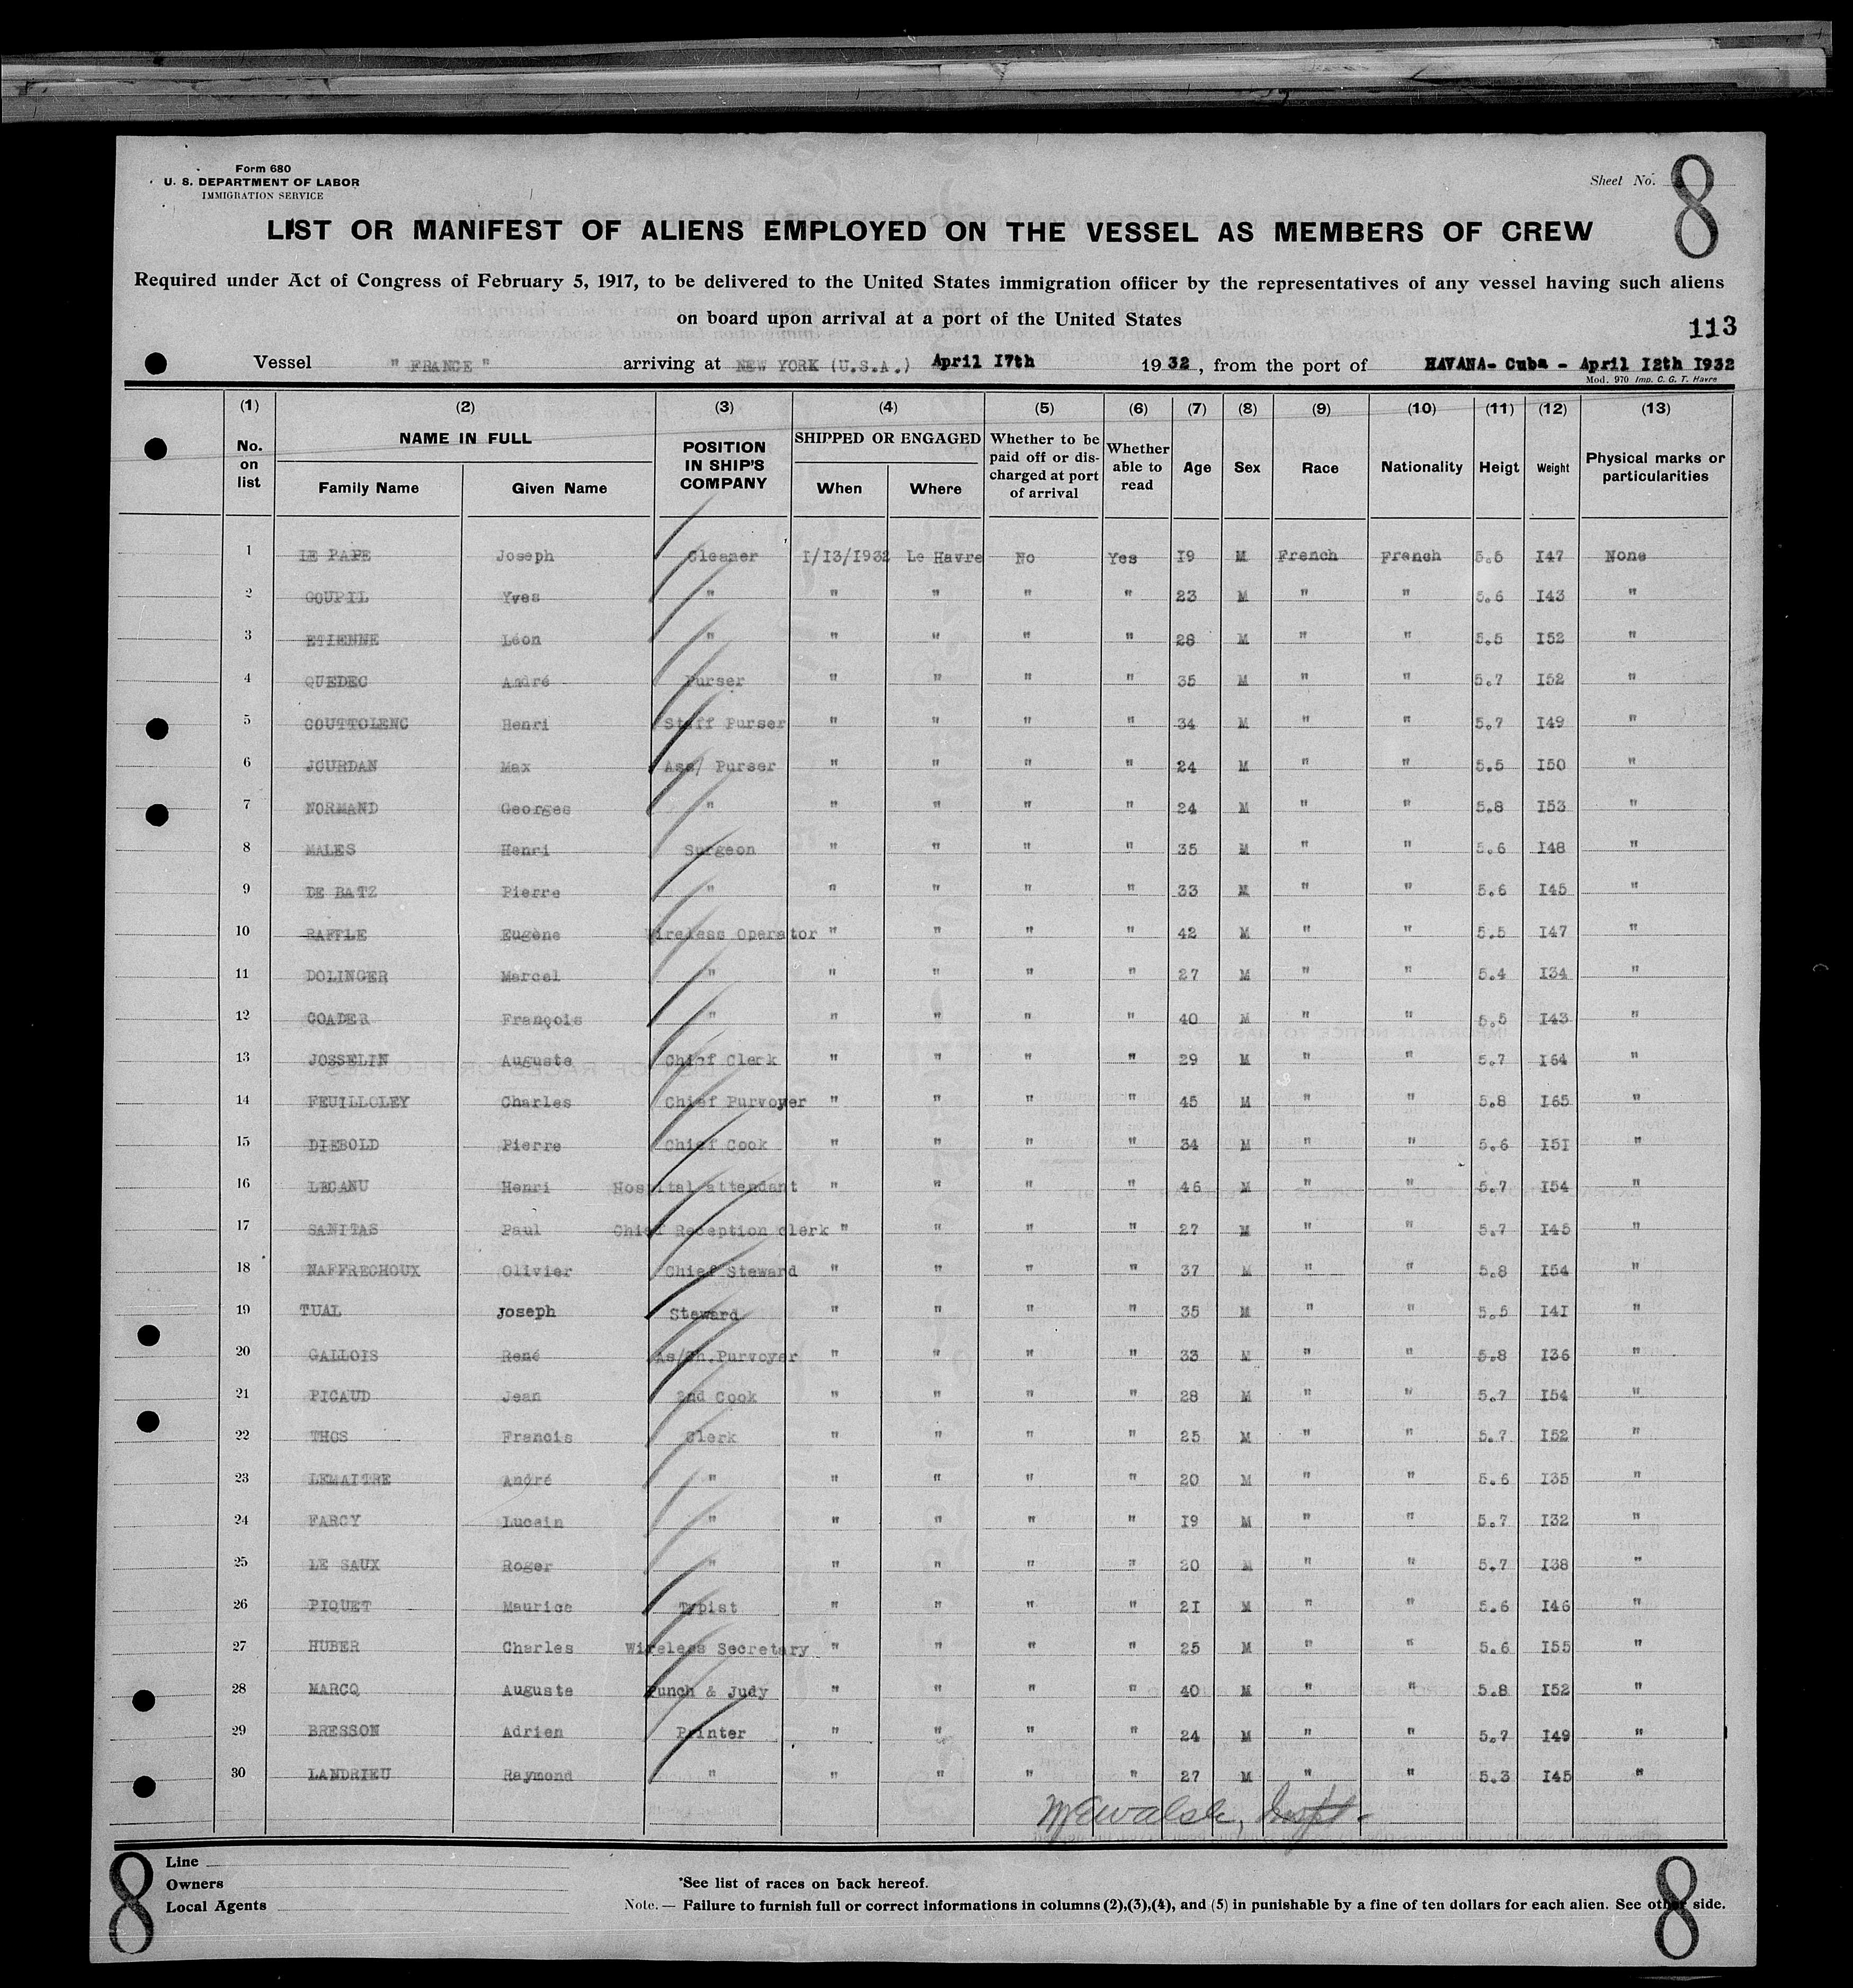 Form 680
U. S. DEPARTMENT OF LABOR
IMMIGRATION SERVICE
Sheet No. 8
LIST OR MANIFEST OF ALIENS EMPLOYED ON THE VESSEL AS MEMBERS OF CREW
Required under Act of Congress of February 5, 1917, to be delivered to the United States immigration officer by the representatives of any vessel having such aliens
on board upon arrival at a port of the United States
113
Vessel " FRANCE " arriving at NEW YORK (U.S.A.) April I7th 1932, from the port of HAVANA- Cuba - April I2th I932
Mod. 970 Imp. C. G. T. Havre
(1) (2) (3) (4) (5) (6) (7) (8) (9) (10) (11) (12) (13)
No. on list NAME IN FULL Family Name Given Name POSITION IN SHIP'S COMPANY SHIPPED OR ENGAGED When Where Whether to be paid off or discharged at port of arrival Whether able to read Age Sex Race Nationality Heigt Weight Physical marks or particularities
1 LE PAPE Joseph Cleaner I/I3/I932 Le Havre No Yes I9 M French French 5.5 I47 None
2 GOUPIL Yves " " " " " 23 M " " 5.6 I43 "
3 ETIENNE Léon " " " " " 28 M " " 5.5 I52 "
4 QUEDEC André Purser " " " " 35 M " " 5.7 I52 "
5 COUTTOLENC Henri Staff Purser " " " " 34 M " " 5.7 I49 "
6 JOURDAN Max Ass/ Purser " " " " 24 M " " 5.5 I50 "
7 NORMAND Georges " " " " " 24 M " " 5.8 I53 "
8 MALES Henri Surgeon " " " " 35 M " " 5.6 I48 "
9 DE BATZ Pierre " " " " " 33 M " " 5.6 I45 "
10 RAFFLE Eugène Wireless Operator " " " " 42 M " " 5.5 I47 "
11 DOLINGER Marcel " " " " " 27 M " " 5.4 I34 "
12 COADER François " " " " " 40 M " " 5.5 I43 "
13 JOSSELIN Auguste Chief Clerk " " " " 29 M " " 5.7 I64 "
14 FEUILLOLEY Charles Chief Purvoyer " " " " 45 M " " 5.8 I65 "
15 DIEBOLD Pierre Chief Cook " " " " 34 M " " 5.6 I5I "
16 LECANU Henri Hospital attendant " " " " 46 M " " 5.7 I54 "
17 SANITAS Paul Chief Reception clerk " " " " 27 M " " 5.7 I45 "
18 NAFFRECHOUX Olivier Chief Steward " " " " 37 M " " 5.8 I54 "
19 TUAL Joseph Steward " " " " 35 M " " 5.5 I4I "
20 GALLOIS René As/Ch.Purvoyer " " " " 33 M " " 5.8 I36 "
21 PICAUD Jean 2nd Cook " " " " 28 M " " 5.7 I54 "
22 THOS Francis Clerk " " " " 25 M " " 5.7 I52 "
23 LEMAITRE André " " " " " 20 M " " 5.6 I35 "
24 FARCY Lucein " " " " " I9 M " " 5.7 I32 "
25 LE SAUX Roger " " " " " 20 M " " 5.7 I38 "
26 PIQUET Maurice Typist " " " " 2I M " " 5.6 I46 "
27 HUBER Charles Wireless Secretary " " " " 25 M " " 5.6 I55 "
28 MARCQ Auguste Punch & Judy " " " " 40 M " " 5.8 I52 "
29 BRESSON Adrien Printer " " " " 24 M " " 5.7 I49 "
30 LANDRIEU Raymond " " " " " 27 M " " 5.3 I45 "
MEWalsh, Inspt.
8 Line
Owners
Local Agents
*See list of races on back hereof.
Note. — Failure to furnish full or correct informations in columns (2),(3),(4), and (5) in punishable by a fine of ten dollars for each alien. See other side.
8